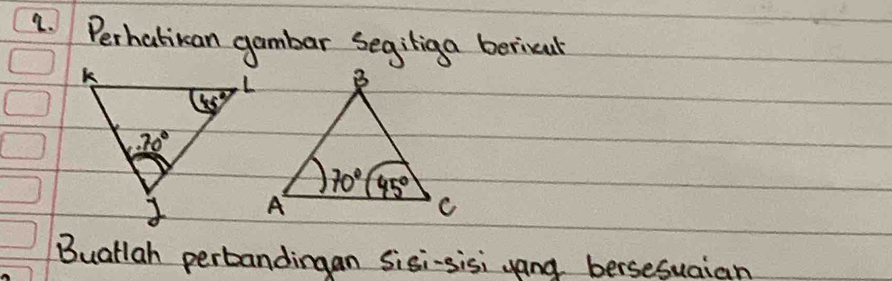 2. Perhatikan gambar segitiga berikut
K L B
45°
70°
70° 45°
J A C
Buatlah perbandingan sisi-sisi yang bersesuaian